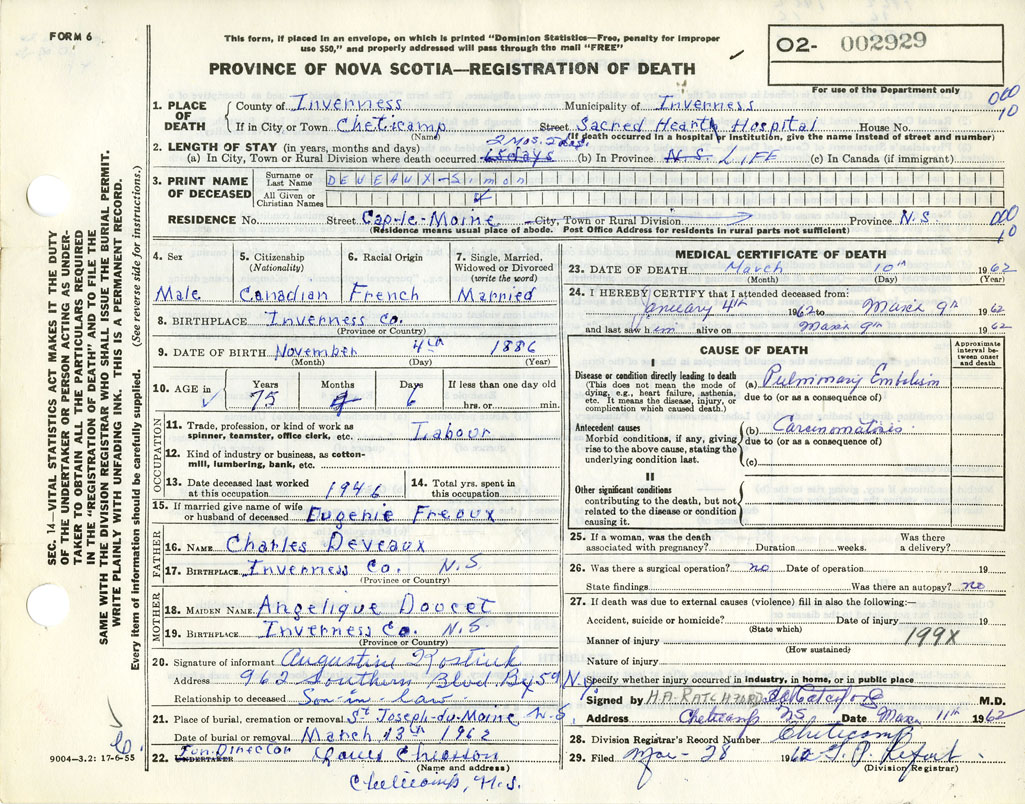 FORM 6
This form, if placed in an envelope, on which is printed "Dominion Statistics—Free, penalty for improper
use $50," and properly addressed will pass through the mail "FREE"
PROVINCE OF NOVA SCOTIA—REGISTRATION OF DEATH
O2- 002929
For use of the Department only
1. PLACE OF DEATH County of Inverness Municipality of Inverness
If in City or Town Cheticamp Street Sacred Hearth Hospital House No.
(Name) (If death occurred in a hospital or institution, give the name instead of street and number)
000
10
2. LENGTH OF STAY (in years, months and days) 2 Mos. 2 days.
(a) In City, Town or Rural Division where death occurred 65 days (b) In Province N.S. LIFE (c) In Canada (if immigrant)
3. PRINT NAME OF DECEASED Surname or Last Name DEVEAUX-Simon
All Given or Christian Names
RESIDENCE No. Street Cap-le-Moine City, Town or Rural Division Province N.S.
(Residence means usual place of abode. Post Office Address for residents in rural parts not sufficient)
000
10
4. Sex
Male
5. Citizenship
(Nationality)
Canadian
6. Racial Origin
French
7. Single, Married,
Widowed or Divorced
(write the word)
Married
8. BIRTHPLACE Inverness Co.
(Province or Country)
9. DATE OF BIRTH November 4th 1886
(Month) (Day) (Year)
10. AGE in Years Months Days If less than one day old
75 4 6 hrs. or min.
OCCUPATION
11. Trade, profession, or kind of work as
spinner, teamster, office clerk, etc. Labour
12. Kind of industry or business, as cotton-
mill, lumbering, bank, etc.
13. Date deceased last worked
at this occupation 1946
14. Total yrs. spent in
this occupation
15. If married give name of wife
or husband of deceased Eugenie Freaux
FATHER
16. NAME Charles Deveaux
17. BIRTHPLACE Inverness Co. N.S
(Province or Country)
MOTHER
18. MAIDEN NAME Angelique Doucet
19. BIRTHPLACE Inverness Co. N.S
(Province or Country)
20. Signature of informant Augustine Kostiuk
Address 962 Southern Blvd By 59 N.y.
Relationship to deceased Son-in law
21. Place of burial, cremation or removal St Joseph-du-Moine N.S.
Date of burial or removal March 13th 1962
22. UNDERTAKER Fun-Director Louis Chiasson
(Name and address)
Cheticamp, N.S.
9004—3.2: 17-6-55
MEDICAL CERTIFICATE OF DEATH
23. DATE OF DEATH March 10th 1962
(Month) (Day) (Year)
24. I HEREBY CERTIFY that I attended deceased from:
January 4th 1962 to March 9th 1962
and last saw him alive on March 9th 1962
CAUSE OF DEATH
Approximate
interval be-
tween onset
and death
I
Disease or condition directly leading to death
(This does not mean the mode of
dying, e.g., heart failure, asthenia,
etc. It means the disease, injury, or
complication which caused death.)
(a) Pulmonary Embolism
due to (or as a consequence of)
Antecedent causes
Morbid conditions, if any, giving
rise to the above cause, stating the
underlying condition last.
(b) Carcinomatosis
due to (or as a consequence of)
(c)
II
Other significant conditions
contributing to the death, but not
related to the disease or condition
causing it.
25. If a woman, was the death
associated with pregnancy? Duration weeks. Was there
a delivery?
26. Was there a surgical operation? no Date of operation 19
State findings Was there an autopsy? no
27. If death was due to external causes (violence) fill in also the following:—
Accident, suicide or homicide? Date of injury 19
(State which)
Manner of injury 199X
(How sustained)
Nature of injury
Specify whether injury occurred in industry, in home, or in public place
Signed by M.D.
Address Cheticamp NS Date March 11th 1962
28. Division Registrar's Record Number Cheticamp
29. Filed Mar - 28 1962
(Division Registrar)
SEC. 14—VITAL STATISTICS ACT MAKES IT THE DUTY
OF THE UNDERTAKER OR PERSON ACTING AS UNDER-
TAKER TO OBTAIN ALL THE PARTICULARS REQUIRED
IN THE "REGISTRATION OF DEATH" AND TO FILE THE
SAME WITH THE DIVISION REGISTRAR WHO SHALL ISSUE THE BURIAL PERMIT.
WRITE PLAINLY WITH UNFADING INK. THIS IS A PERMANENT RECORD.
Every item of information should be carefully supplied. (See reverse side for instructions.)